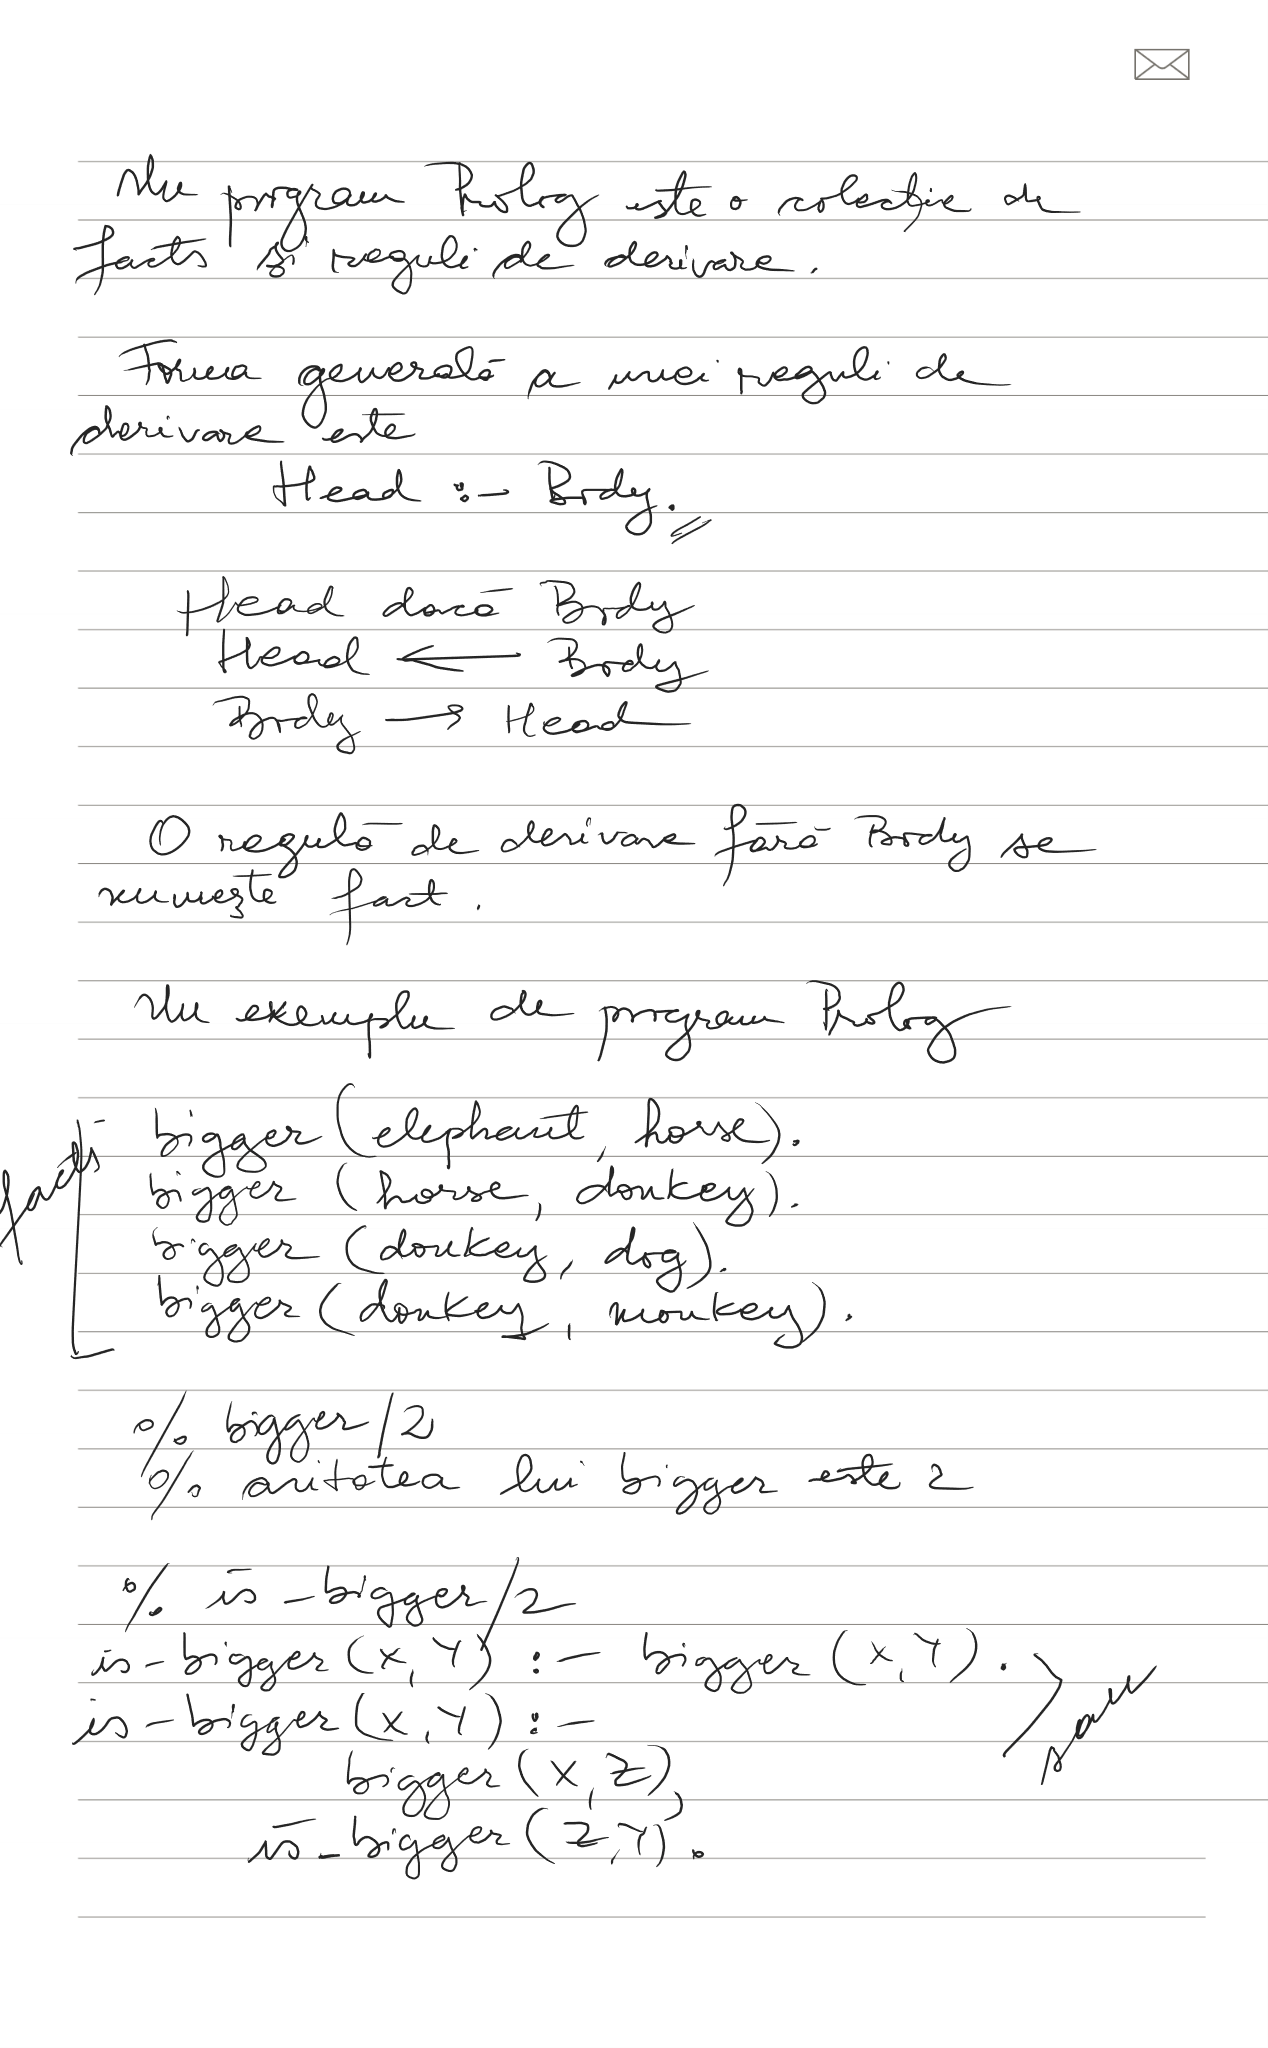 Un program Prolog este o colecție de
facts și reguli de derivare.
Forma generală a unei reguli de
derivare este
Head :- Body.
Head dacă Body
Head ← Body
Body → Head
O regulă de derivare fără Body se
numește fact.
Un exemplu de program Prolog
facts
bigger (elephant, horse).
bigger (horse, donkey).
bigger (donkey, dog).
bigger (donkey, monkey).
% bigger/2
% aritatea lui bigger este 2
% is_bigger/2
is_bigger (X, Y) :- bigger (X, Y).
sau
is_bigger (X, Y) :-
bigger (X, Z),
is_bigger (Z, Y).